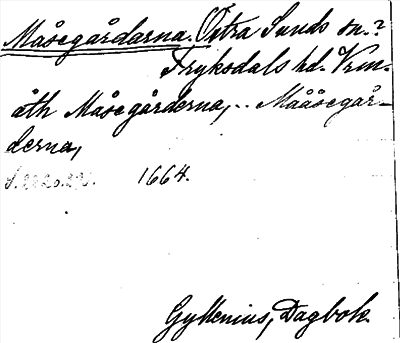 Måsegårdarna. Östra Sunds sn.?
Fryksdals hd. Vrm.
äth Måsegårderna, .. Måååsegår-
derna,
1664.
Gyllenius, Dagbok.